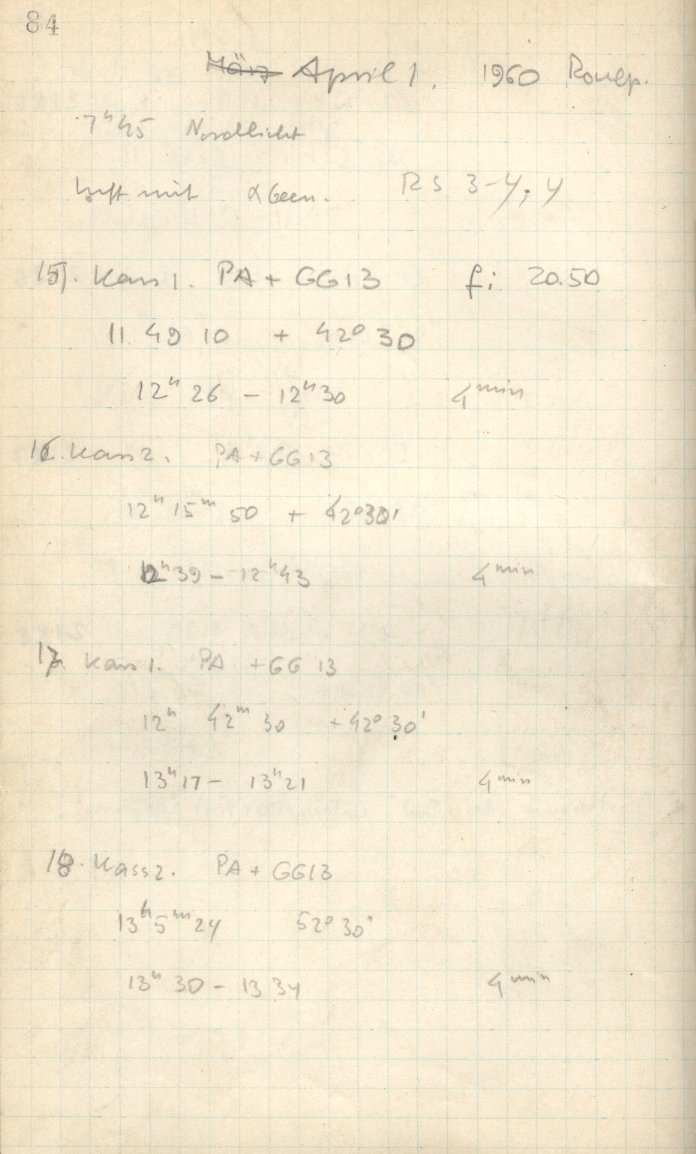 84
März April 1. 1960
7ʰ45 Nordlicht
Luft mit RS 3-4, 4
15. Kass 1. PA + GG13 f: 20.50
11 49 10 + 42° 30
12ʰ 26 – 12ʰ30 4ᵐⁱⁿ
16. Kass 2. PA + GG13
12ʰ 15ᵐ 50 + 42°30'
12ʰ39 – 12ʰ43 4ᵐⁱⁿ
17. Kass 1. PA + GG 13
12ʰ 42ᵐ 30 + 42° 30'
13ʰ17 – 13ʰ21 4ᵐⁱⁿ
18. Kass 2. PA + GG13
13ʰ5ᵐ24 52° 30'
13ʰ 30 – 13 34 4ᵐⁱⁿ